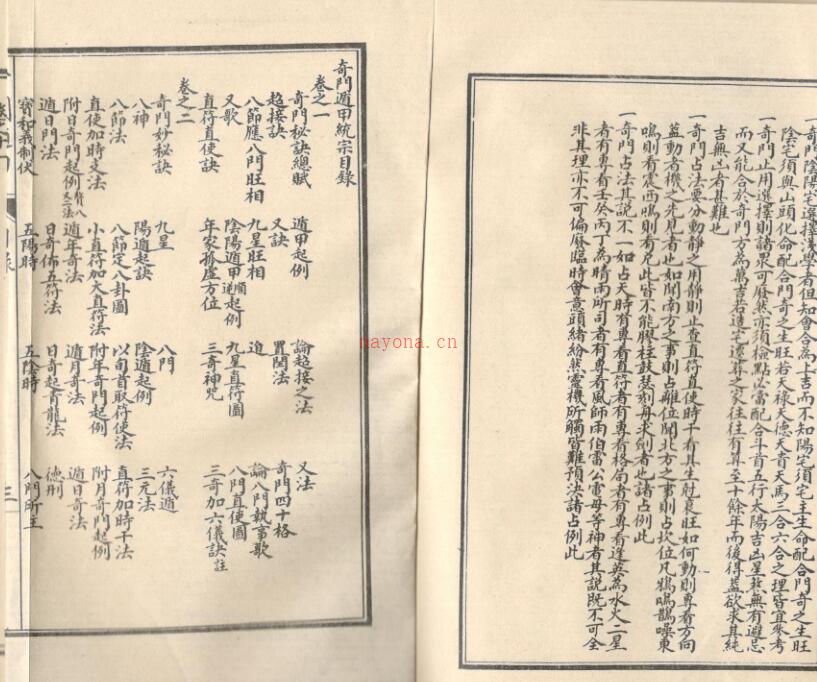 一奇門陰陽宅選擇淺學者但知會合為上吉而不知陽宅須宅主生命配合門奇之生旺
陰宅須與山頭化命配合門奇之生旺若天祿天德天貴天馬三合六合之理皆宜參考
一奇門止用選擇則諸眾可廢然亦須檢點必當配合斗首五行太陽吉凶星煞無有避忌
而又能合於奇門方為萬吉若造宅遷葬之家往往有算至十餘年而後得蓋欲求其純
吉無凶者甚難也
一奇門占法要分動靜之用靜則止查直符直使時干看其生尅衰旺如何動則專看方向
蓋動者機之先見者也如聞南方之事則占離位聞北方之事則占坎位凡鴉鳴鵲噪東
鳴則看震西鳴則看兌此皆不能膠柱鼓瑟刻舟求劍者也諸占例此
一奇門占法其說不一如占天時有專看直符者有專看格局者有專看蓬英為水火二星
者有專看壬癸丙丁為晴雨所司者有專看風師雨伯雷公電母等神者其說既不可全
非其理亦不可偏廢臨時會意頭緒紛然靈機所觸皆難預決諸占例此
奇門遁甲統宗目錄
卷之一
奇門秘訣總賦 遁甲起例 論超接之法 又法
超接訣 又訣 置閏法 奇門四十格
八節應八門旺相 九星旺相 迫 論八門執事歌
又歌 陰陽遁甲順逆起例 九星直符圖 八門直使圖
直符直使訣 年家孤虛方位 三奇神咒 三奇加六儀訣註
卷之二
奇門妙秘訣 九星 八門 六儀遁
八神 陽遁起訣 陰遁起例 三元法
八節法 八節定八卦圖 以旬首取符使法 直符加時干法
直使加時支法 小直符加大直符法 附年奇門起例 附月奇門起例
附日奇門起例 遁年奇法 遁月奇法 遁日奇法
遁日門法 日奇佈五符法 日奇起青龍法 德刑
寶和義制伏 五陽時 五陰時 八門所主
三
nayona.cn